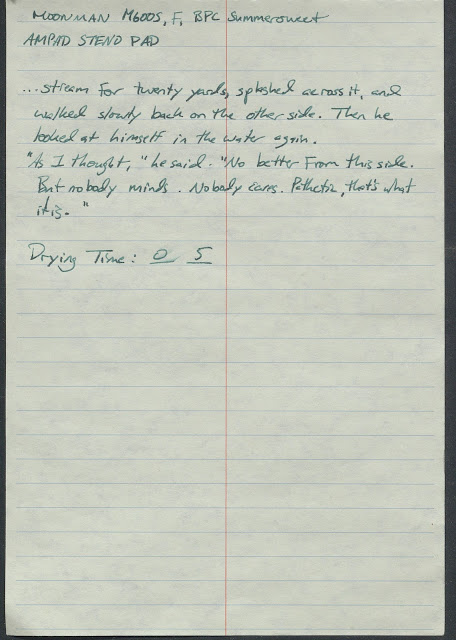 MOONMAN M600S, F, BPC Summersweet
AMPAD STENO PAD
...stream for twenty yards, splashed across it, and
walked slowly back on the other side. Then he
looked at himself in the water again.
"As I thought," he said. "No better from this side.
But nobody minds. Nobody cares. Pathetic, that's what
it is."
Drying Time: 0 5